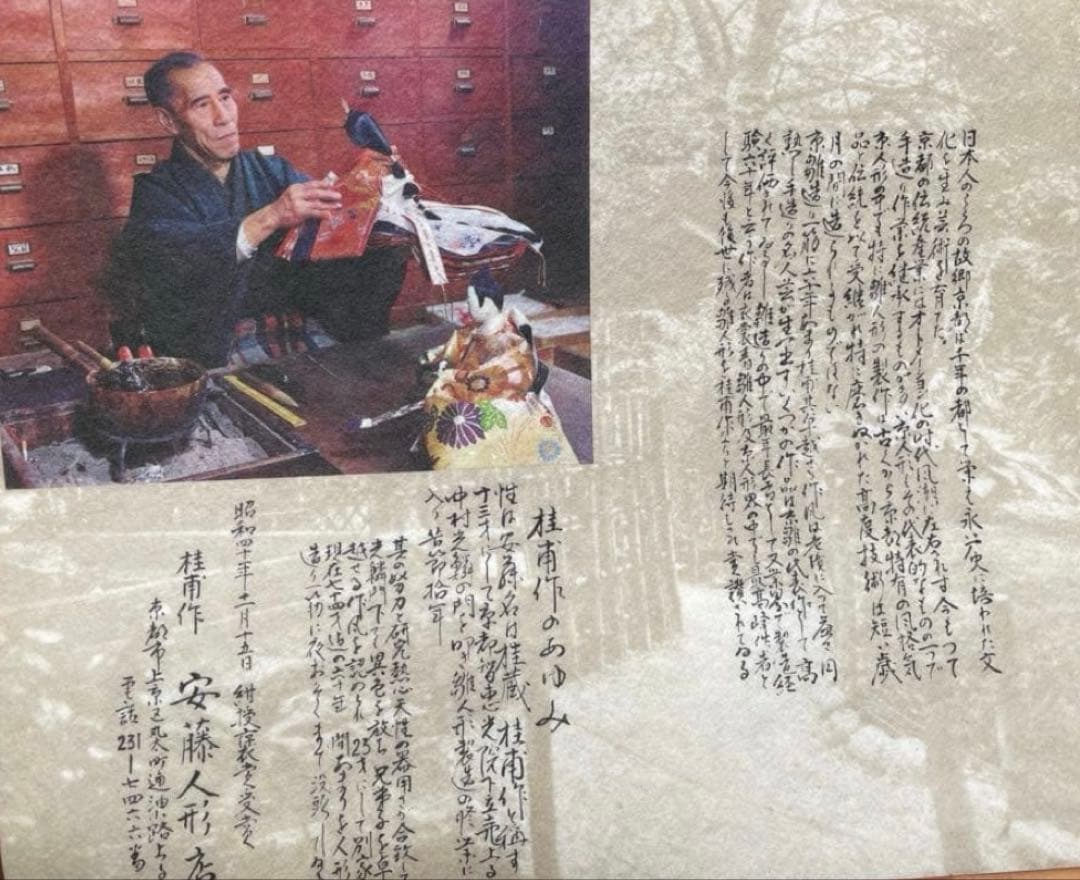 日本人のこころの故郷京都は千年の都として栄え永い歴史に培われた文
化を生み芸術を育てた。
京都の伝統産業にはオートメイション化の時代風潮に左右されず今もって
手造り作業を継承するものがある 京人形もその代表的なものの一つで
京人形の中でも特に雛人形の製作は古くから京都特有の風格気
品と伝統を以て受継がれ特に磨きぬかれた高度技術は短い歳
月の間に造られるものではない
京雛造り一筋に六十年あまり桂甫作の作風は老境に入って益々円
熟し手造りの名人芸が生み出すいくつかの作品は京雛の代表作として高
く評価されている 雛造りの中で最年長者として又業界で製造経
験六十年と云う作者は衣裳着雛人形及京人形界の中でも最高峰作者と
して今後も後世に残る雛人形を桂甫作ならと期待され賞讃されてゐる
桂甫作のあゆみ
性は安藤 名は桂蔵 桂甫作と稱す
十三才にして京都智恵光院下立売上る
中村光麟の門を叩き雛人形製造の修業に
入り苦節拾年
其の努力と研究熱心天性の器用さが合致して
光麟門下でも異色を放ち兄弟子を卓
越せる作風を認められ23才にして別家
現在七十四才迄の五十年間あまりを人形
造り一筋に夜おそくまで没頭してゐる
昭和四十年十二月十五日 紺綬褒章受賞
桂甫作 安藤人形店
京都市上京区丸太町通油小路上る
電話 231-七四六六番